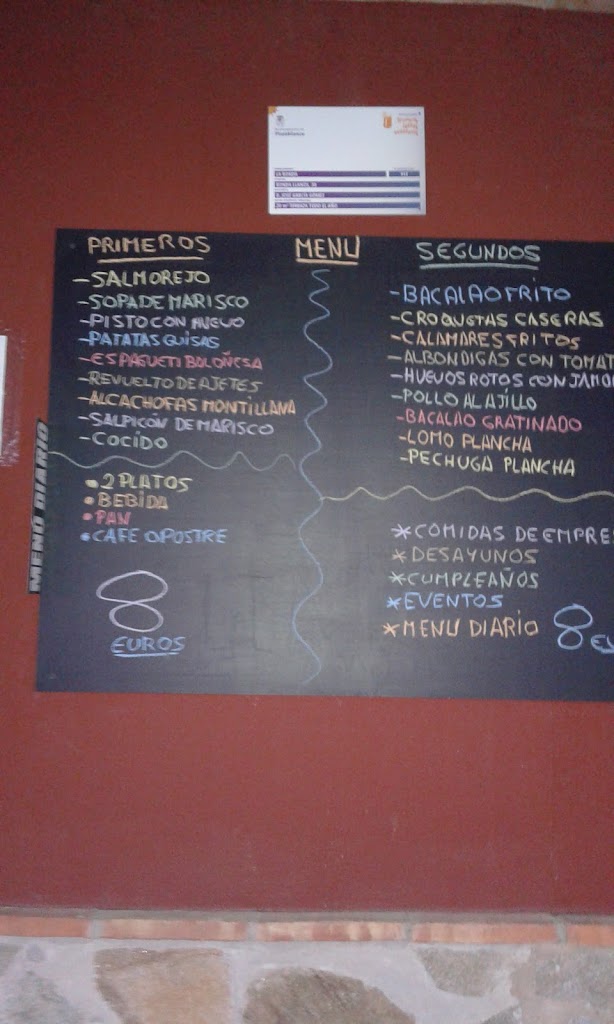 MENU
PRIMEROS
-SALMOREJO
-SOPA DE MARISCO
-PISTO CON HUEVO
-PATATAS GUISAS
-ESPAGUETI BOLOÑESA
-REVUELTO DE AJETES
-ALCACHOFAS MONTILLANA
-SALPICÓN DE MARISCO
-COCIDO
•2 PLATOS
•BEBIDA
•PAN
•CAFE O POSTRE
8
EUROS
SEGUNDOS
-BACALAO FRITO
-CROQUETAS CASERAS
-CALAMARES FRITOS
-ALBONDIGAS CON TOMAT
-HUEVOS ROTOS CON JAMO
-POLLO AL AJILLO
-BACALAO GRATINADO
-LOMO PLANCHA
-PECHUGA PLANCHA
*COMIDAS DE EMPRE
*DESAYUNOS
*CUMPLEAÑOS
*EVENTOS
*MENU DIARIO 8 EU
MENÚ DIARIO